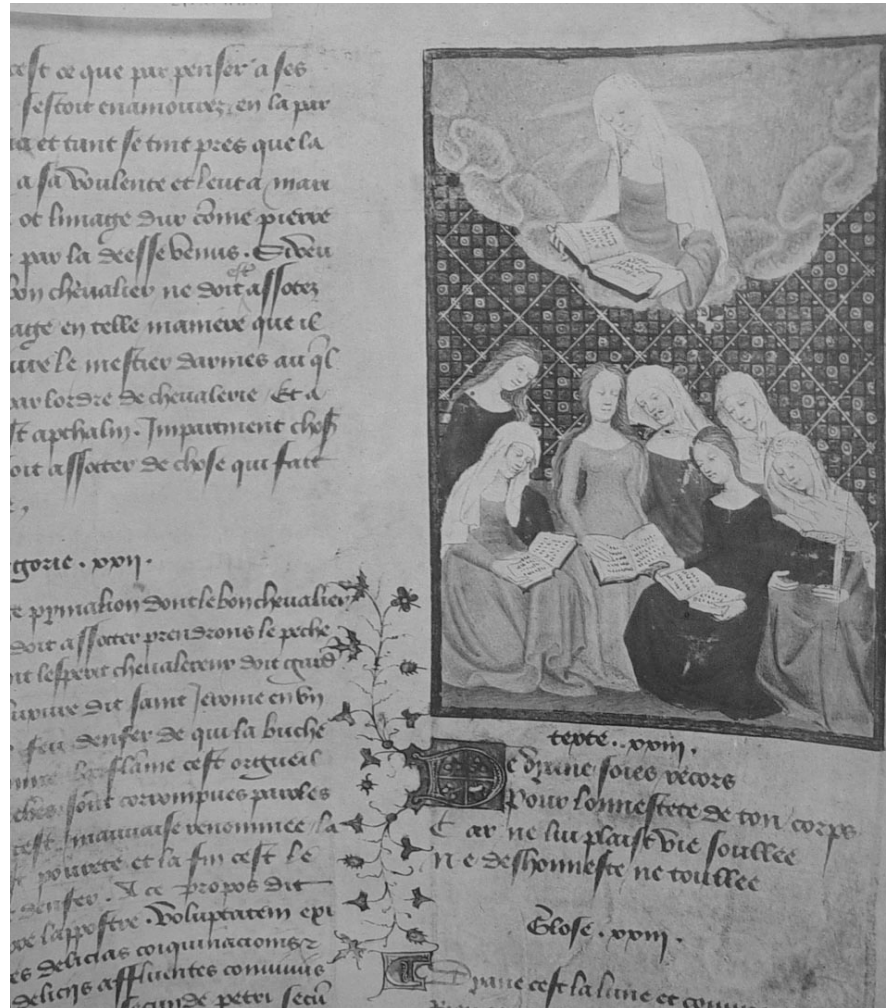 cest ce que par penser a ses
sestoit enamourez en la par
et tant se tint pres que la
a sa voulente et leut a mari
ot limage dur come pierre
par la deesse venus. Si veu
bon chevalier ne doit est assotez
age en telle maniere que il
uive le mestier darmes au ql
par lordre de chevalerie Et a
st apthalin. Impartment chose
oit assotter de chose qui fait
gorie. xxii.
e pymalion dont le bon chevalier
doit assotter prendrons le peche
oit lesperit chevalereux doit gard
dit saint Jerome en vn
feu denfer de qui la buche
la flame cest orgueil
eches sont corrompues paroles
cest mauvaise renommee la
pourete et la fin cest le
denfer. A ce propos dit
lappostre. Voluptatem exi
es delicias coiquinacionis
deliciis affluentes conviviis
secunde petri secu
texte. xxiii.
De dyane soies recors
Pour lonnestete de ton corps
Car ne lui plaist vie soullee
Ne deshonneste ne toullee
Glose. xxiii.
Dyane cest la lune et comme